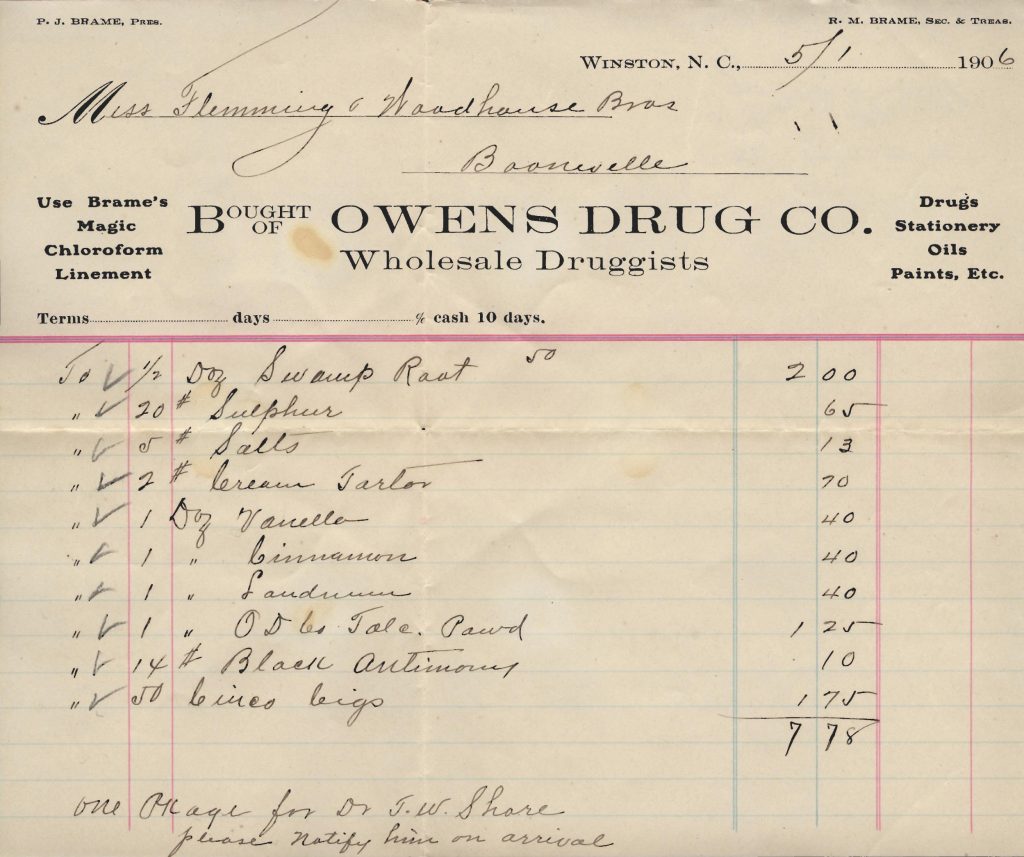 P. J. BRAME, PRES.
R. M. BRAME, SEC. & TREAS.
WINSTON, N. C., 5/1 1906
Miss Flemming & Woodhouse Bros
Booneville
Use Brame's
Magic
Chloroform
Linement
BOUGHT OF OWENS DRUG CO.
Wholesale Druggists
Drugs
Stationery
Oils
Paints, Etc.
Terms days % cash 10 days.
To ✓ 1/2 Doz Swamp Root 50 2 00
" ✓ 20 # Sulphur 65
" ✓ 5 # Salts 13
" ✓ 2 # Cream Tartor 70
" ✓ 1 Doz Vanella 40
" ✓ 1 " Cinnamon 40
" ✓ 1 " Laudnum 40
" ✓ 1 " O D Co Talc. Powd 1 25
" ✓ 14 # Black Antimony 10
" ✓ 50 Cinco Cigs 1 75
7 78
one PKage for Dr T. W. Shore
please Notify him on arrival